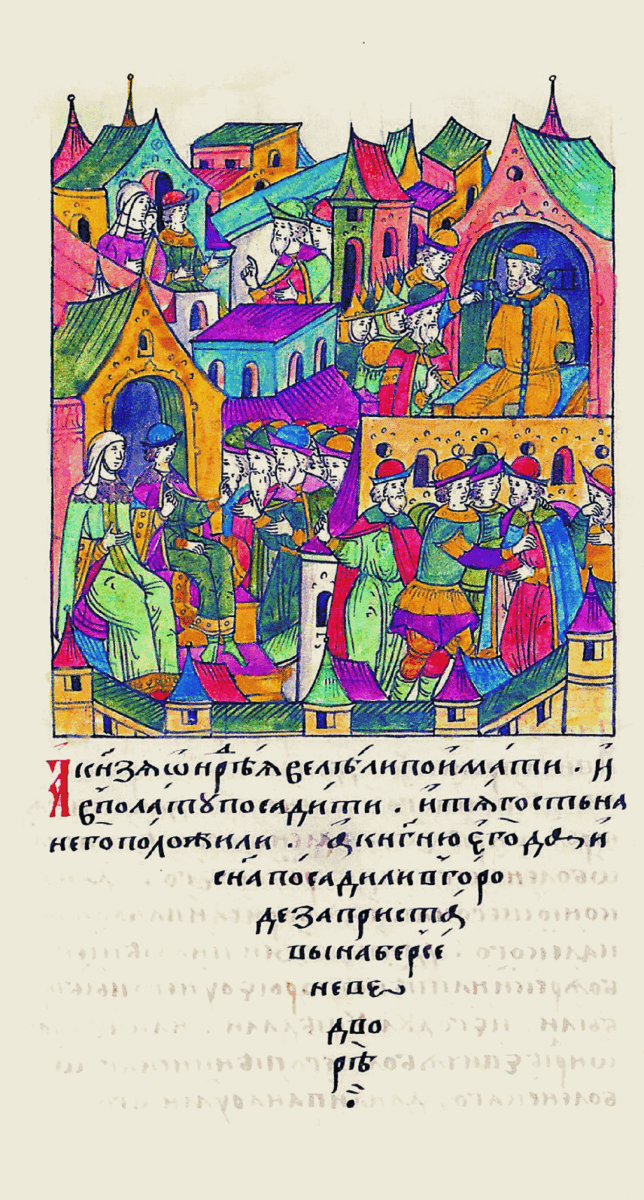 А кн҃зѧ ѡнрд̾ѣѧ велѣли поимати . и
в полатꙋ посадити . и тѧгость на
него положили . а кнѧгиню его да и
сн҃а посадили в горо
де за приста
вы на берсе
неве
дво
рѣ